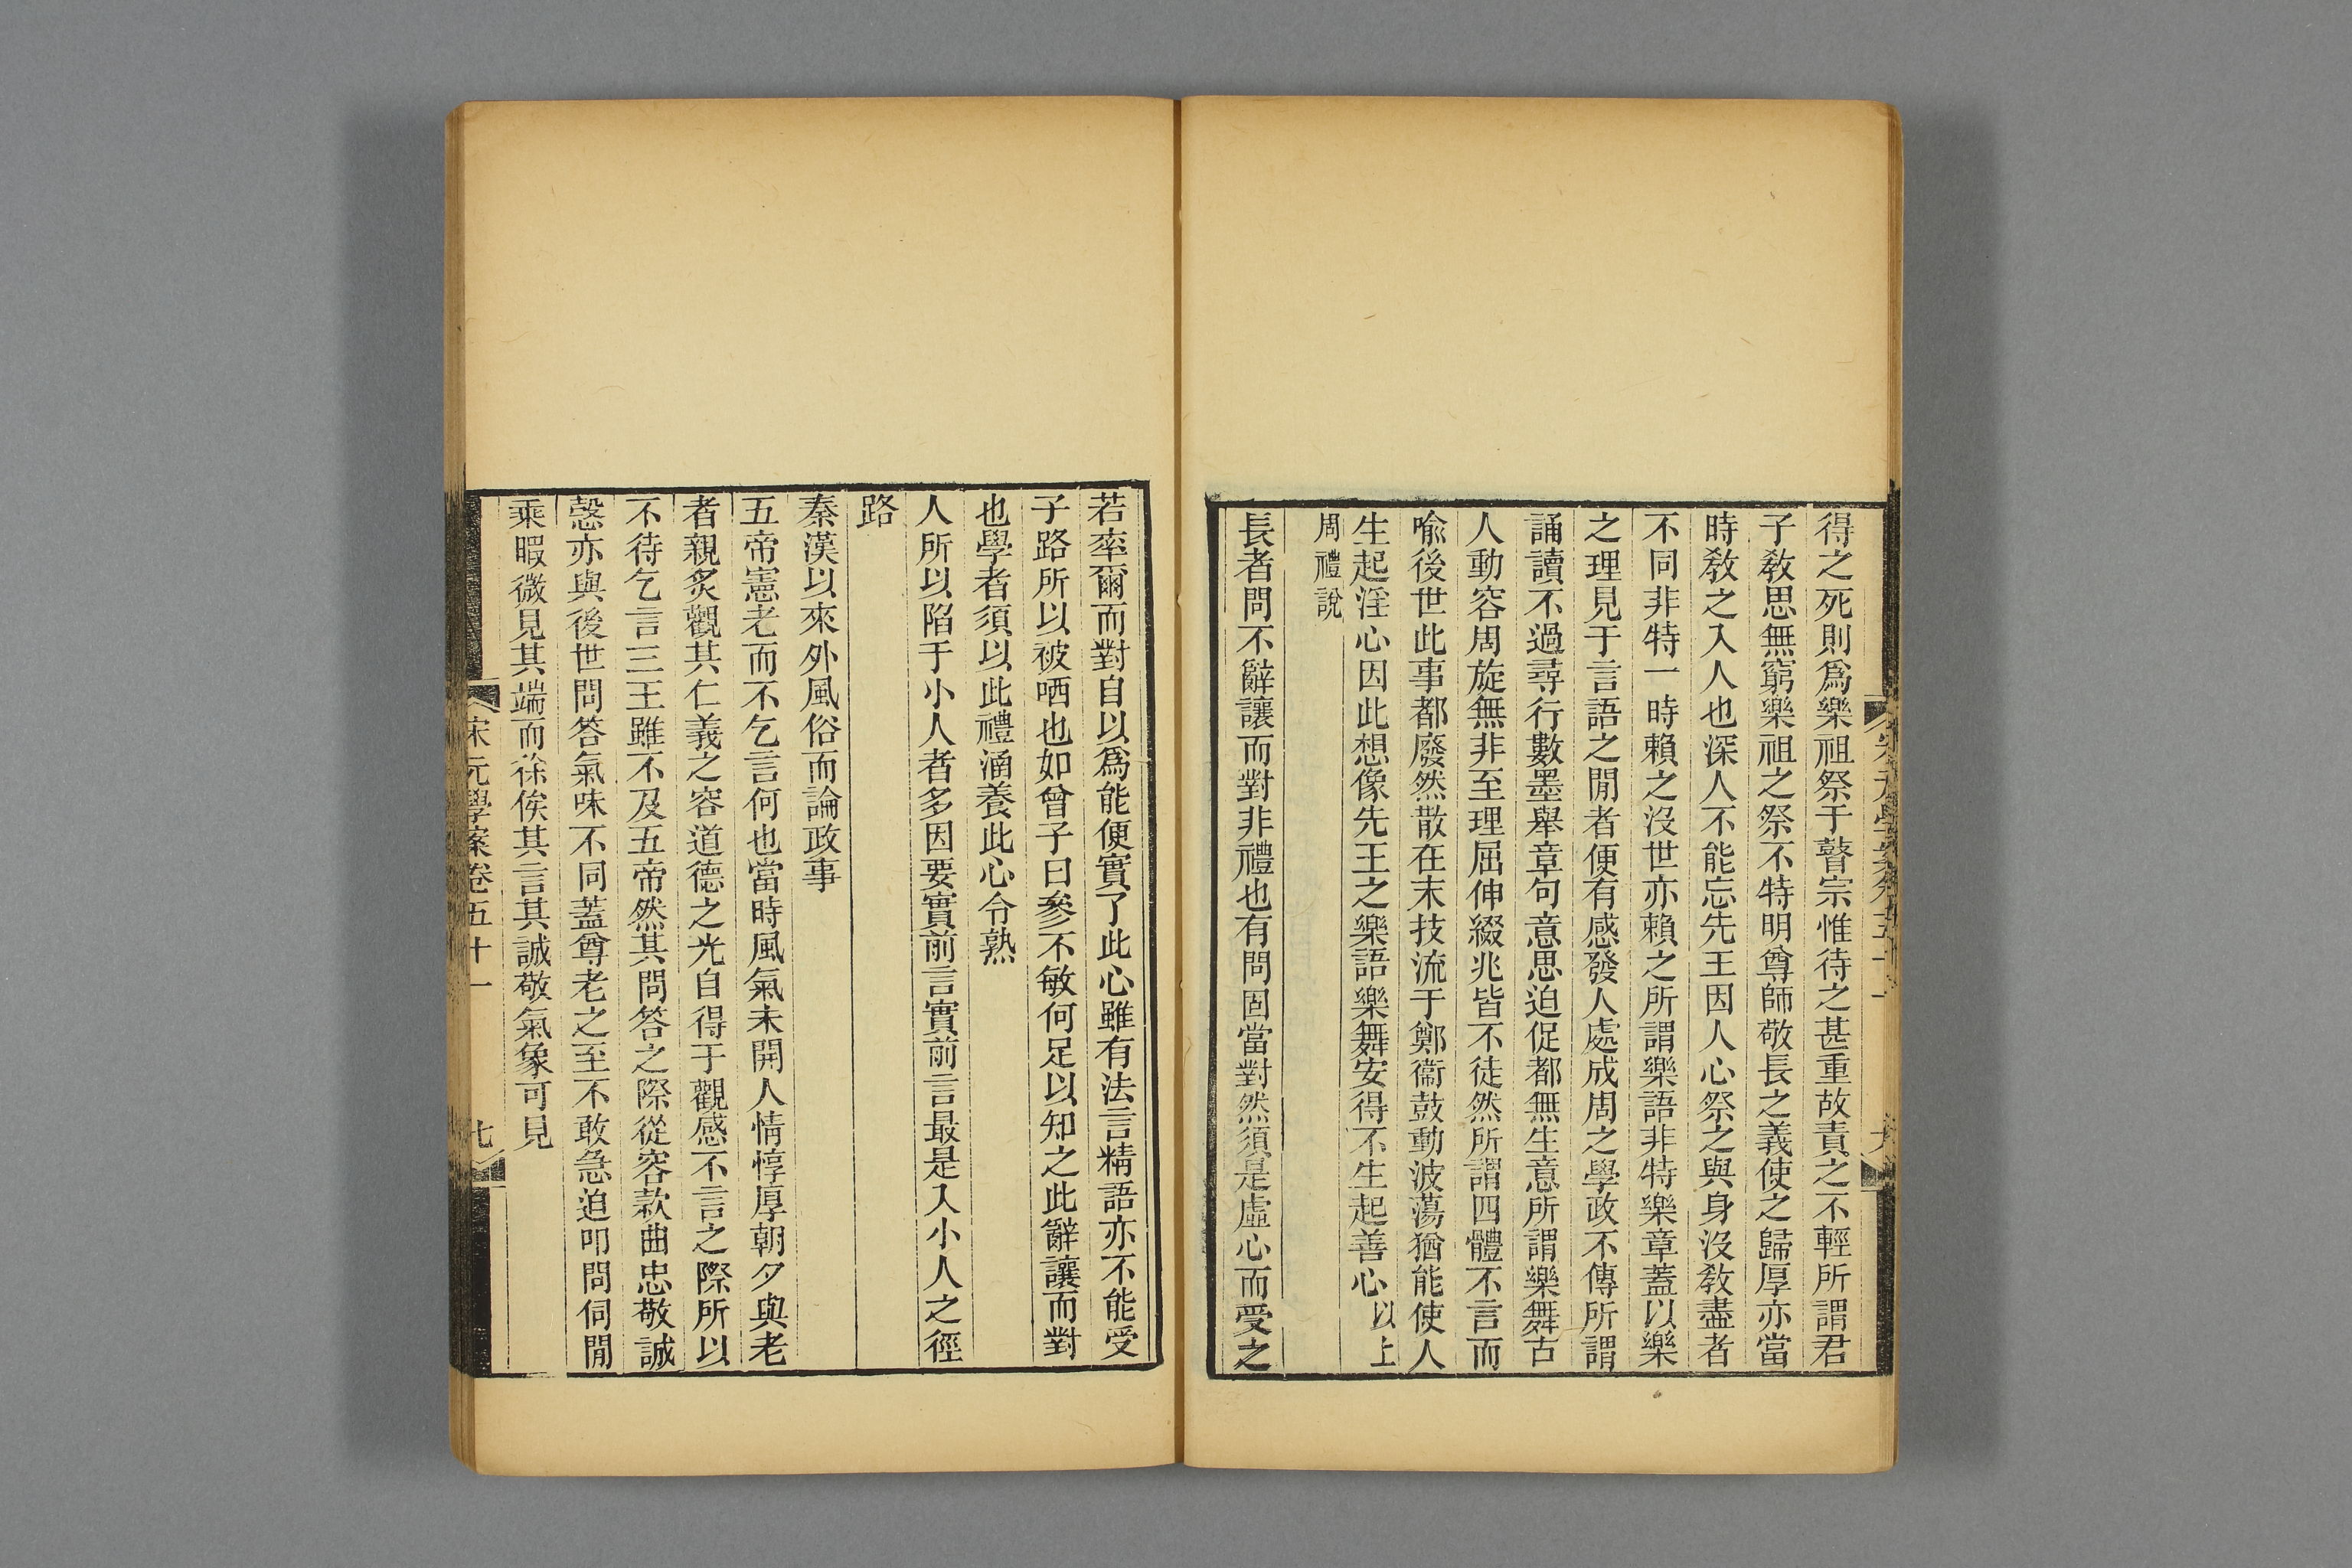 得之死則爲樂祖祭于瞽宗惟待之甚重故責之不輕所謂君
子敎思無窮樂祖之祭不特明尊師敬長之義使之歸厚亦當
時敎之入人也深人不能忘先王因人心祭之與身沒敎盡者
不同非特一時賴之沒世亦賴之所謂樂語非特樂章蓋以樂
之理見于言語之閒者便有感發人處成周之學政不傳所謂
誦讀不過尋行數墨舉章句意思迫促都無生意所謂樂舞古
人動容周旋無非至理屈伸綴兆皆不徒然所謂四體不言而
喩後世此事都廢然散在末技流于鄭衞鼓動波蕩猶能使人
生起淫心因此想像先王之樂語樂舞安得不生起善心以上
周禮說
長者問不辭讓而對非禮也有問固當對然須是虛心而受之
若率爾而對自以爲能便實了此心雖有法言精語亦不能受
子路所以被哂也如曾子曰參不敏何足以知之此辭讓而對
也學者須以此禮涵養此心令熟
人所以陷于小人者多因要實前言實前言最是入小人之徑
路
秦漢以來外風俗而論政事
五帝憲老而不乞言何也當時風氣未開人情惇厚朝夕與老
者親炙觀其仁義之容道德之光自得于觀感不言之際所以
不待乞言三王雖不及五帝然其問答之際從容款曲忠敬誠
慤亦與後世問答氣味不同蓋尊老之至不敢急迫叩問伺閒
乘暇微見其端而徐俟其言其誠敬氣象可見
宋元學案卷五十一
七